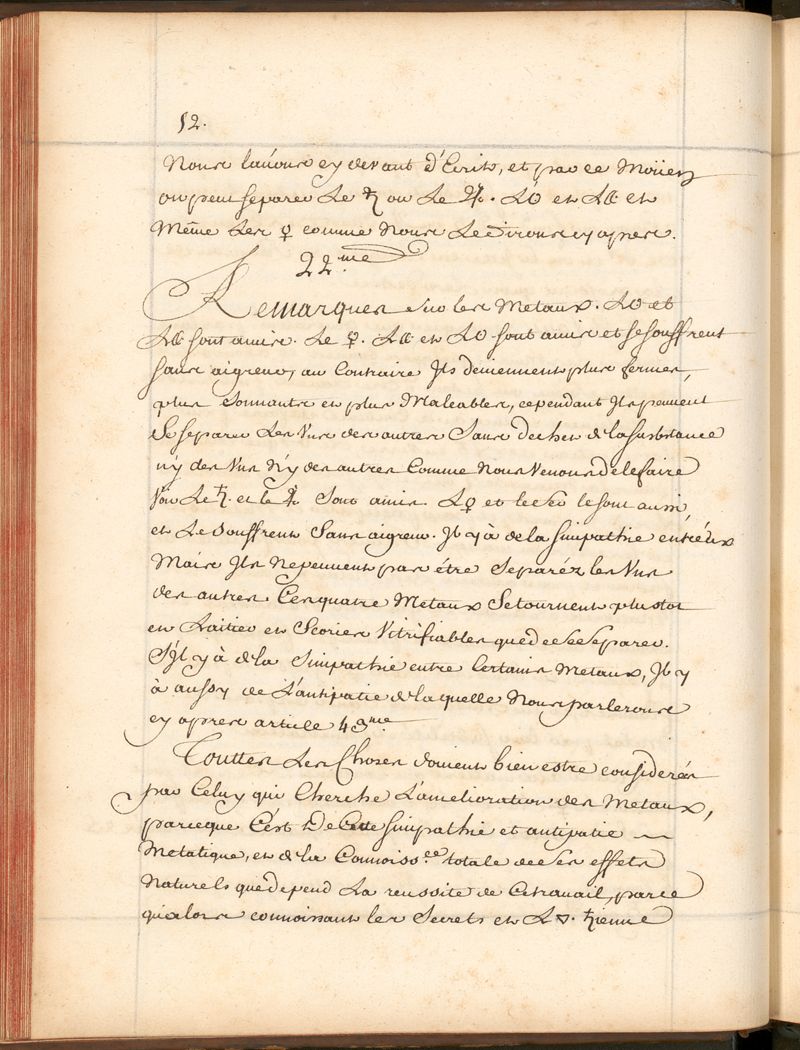 52.
Nous lavons cy devant d'Ecrits, et par ce Moüien
on peut separer Le ♄ ou Le ♃. L☉ et L☾ et
Même Les ♀ comme Nous Le dirons cy apres.
22.me
Remarques sur les Metaux. L☉ et
L☾ sont amis. Le ♀. L☾ et L☉ sont amis et se souffrent
sans aigreur, au Contraire Ils deviennent plus fermes,
plus sonnants et plus Maleables, cependant Ils peuvent
Se separer Les Uns des autres Sans dechet de la substance
n'y des Uns N'y des autres Comme Nous Venons de le faire
Voir Le ♄. et le ♃ Sont amis. L♀ et le le sont aussi,
et Se souffrent Sans aigreur. Il y à de la simpathie entr'eux
Mais Ils Ne peuvent pas étre Separéz les Uns
des autres Ces quatre Metaux Se tournent plustot
en Laitier et Scories Vitrifiables que de se Separer.
S'il y à de la Simpathie entre Certains Metaux, Il y
à aussy de L'antipatie de la quelle Nous parlerons
cy apres article 49me
Touttes Les Choses doivent bien estre considerées
par Celuy qui Cherche L'amelioration des Metaux,
parceque C'est De Cette simpathie et antipatie
Metatique, et de la Connoiss.ce totale de ses effets
Naturels que depend La reussite de Ce travail, parce
qu'alors connoissant les Secrets et L🜄. ♄ienne